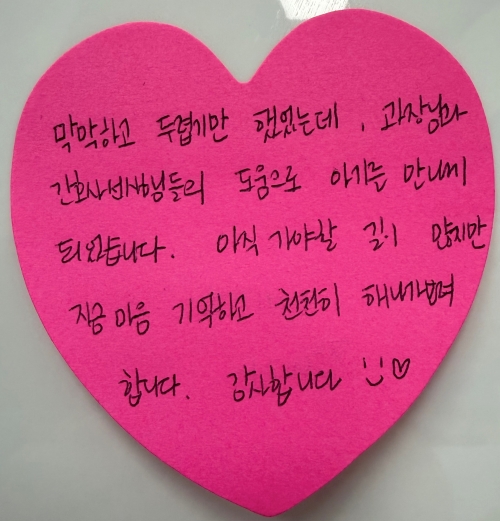 막막하고 두렵기만 했었는데, 과장님과
간호사선생님들의 도움으로 아기를 만나게
되었습니다. 아직 가야할 길이 많지만
지금 마음 기억하고 천천히 해나가보려
합니다. 감사합니다 :) ♡